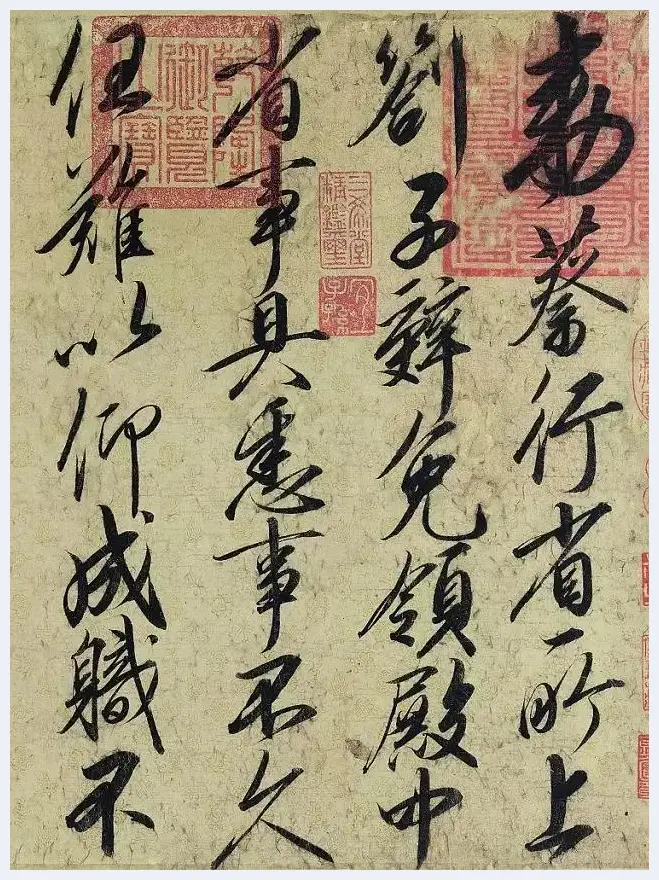 勅蔡行省所上
劄子辭免領殿中
省事具悉事不久
任難以仰成軄不
三希堂精鑑璽
宜子孫
乾隆御覽之寶